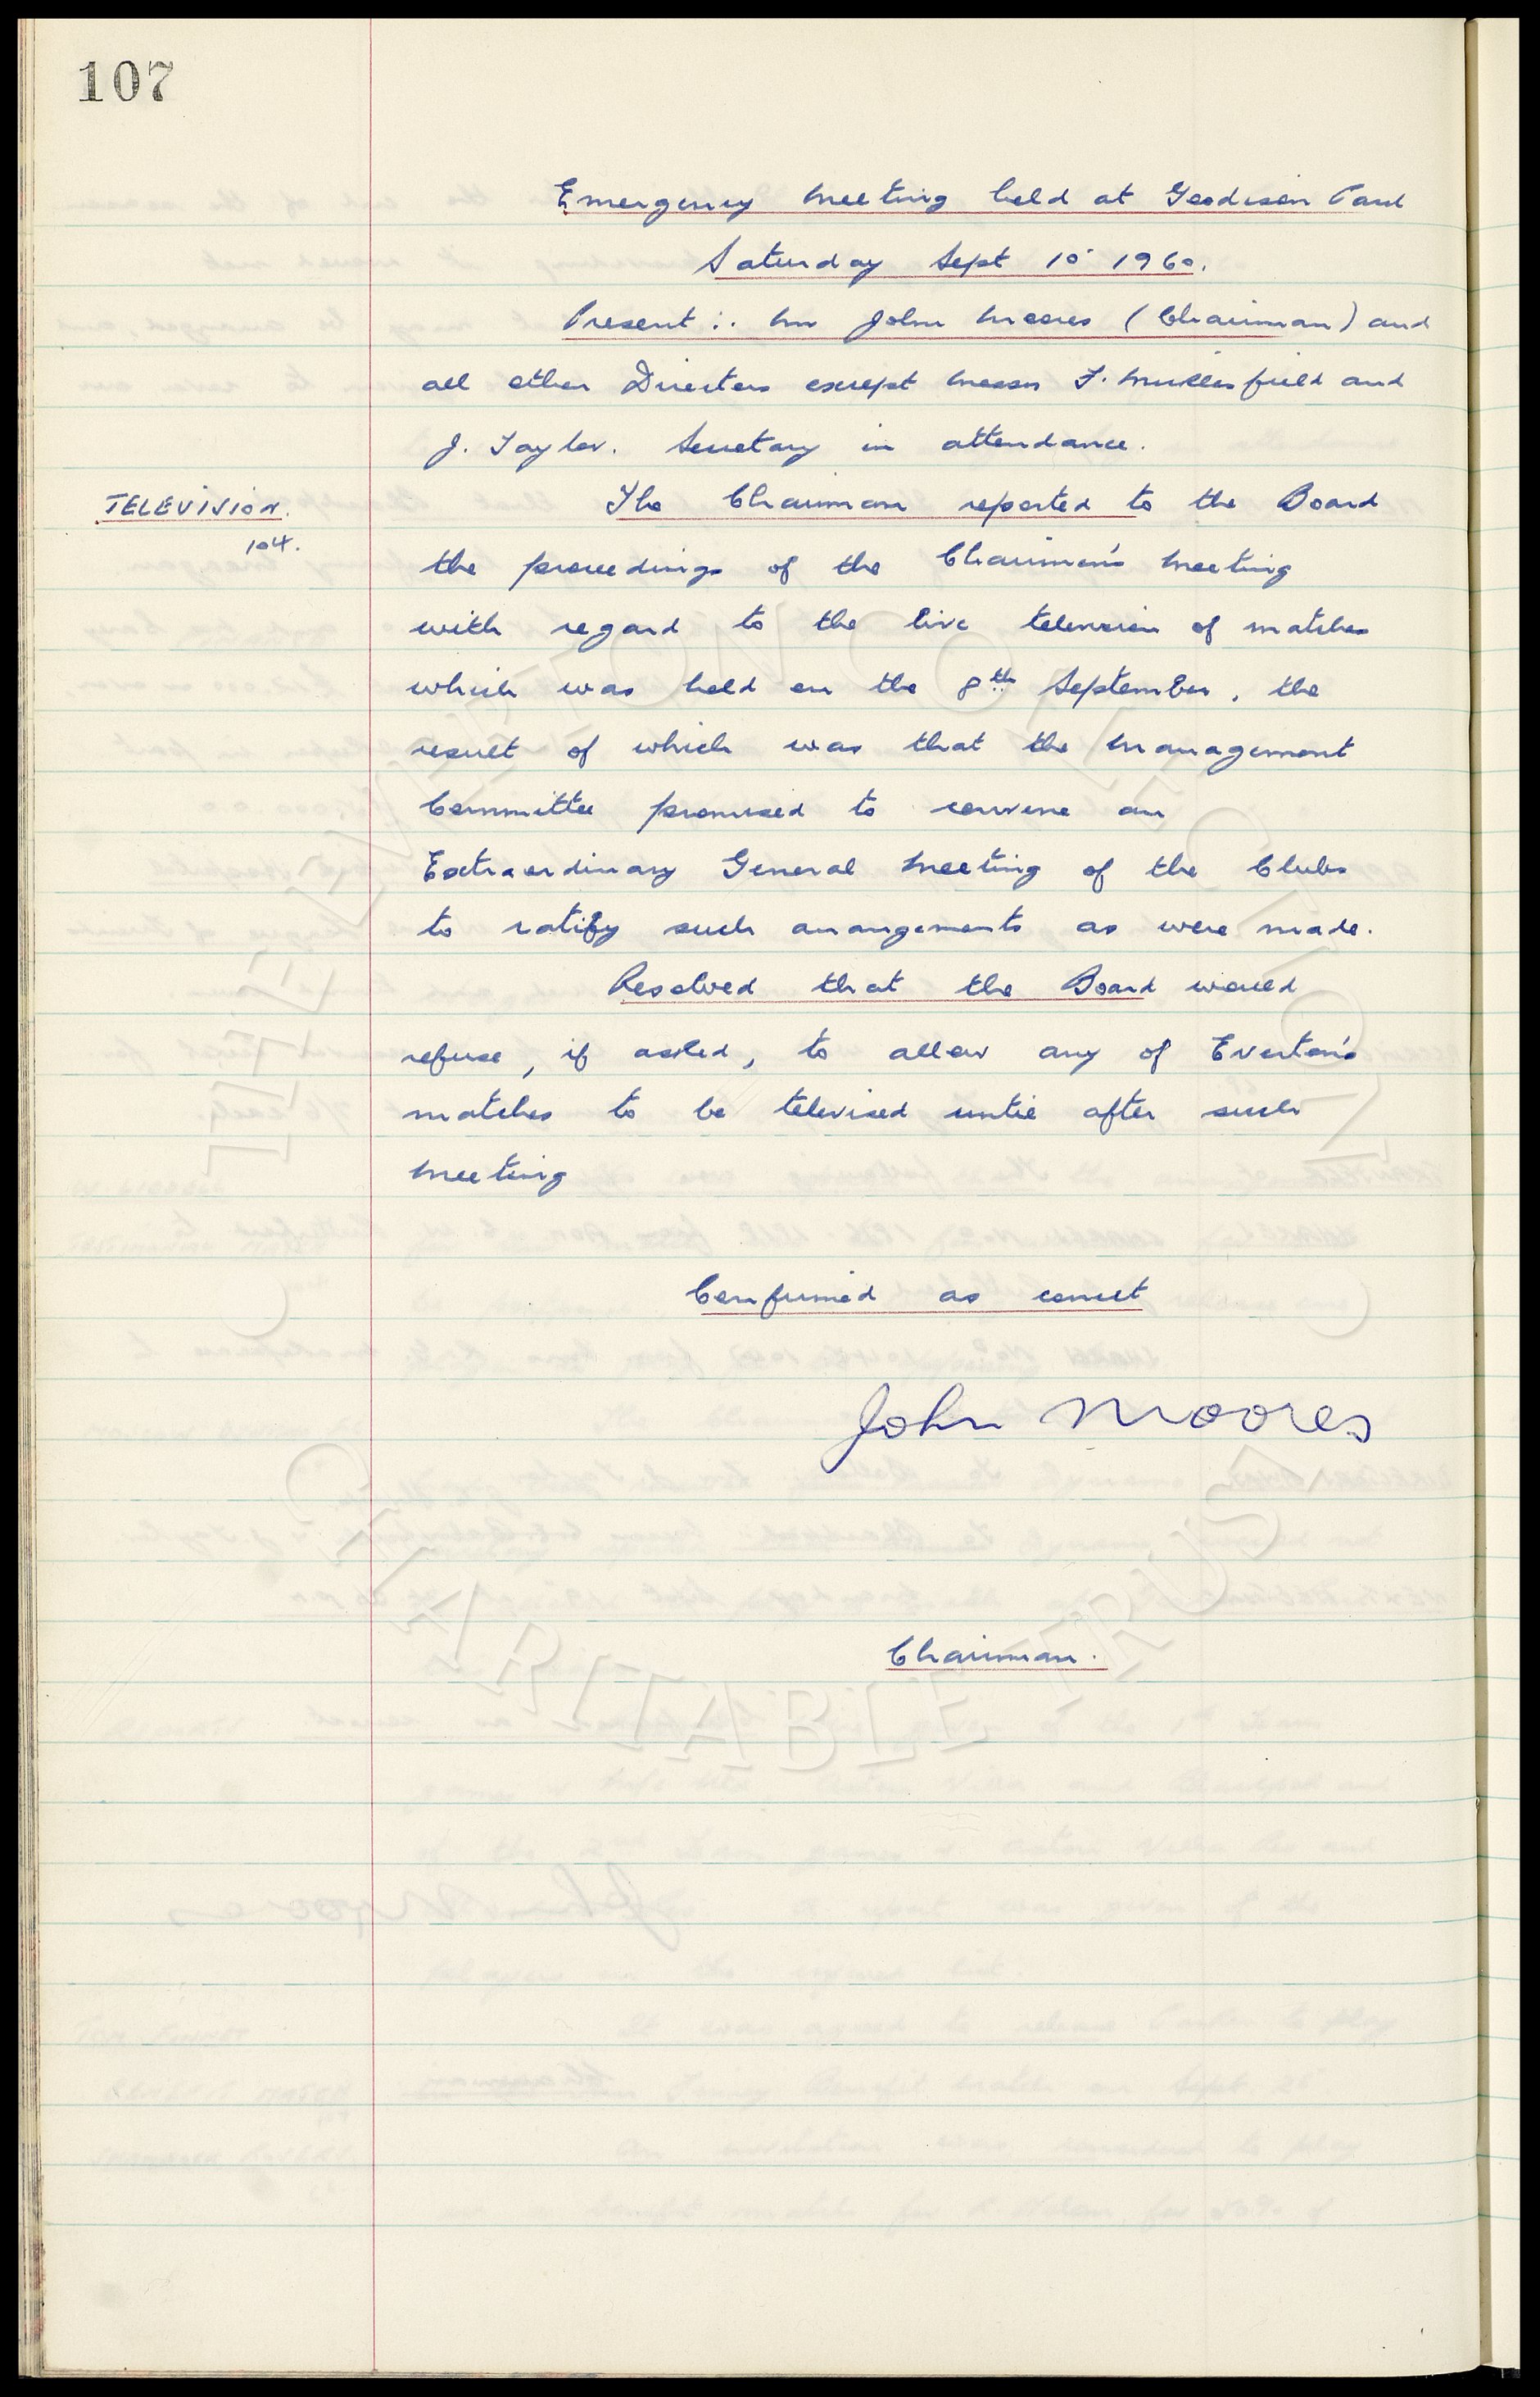 107
Emergency Meeting held at Goodison Park
Saturday Sept 10 1960.
Present:. Mr John Moores (Chairman) and
all other Directors except Messrs F. Micklesfield and
J. Taylor. Secretary in attendance.
TELEVISION.
104.
The Chairman reported to the Board
the proceedings of the Chairmen's Meeting
with regard to the live television of matches
which was held on the 8th September, the
result of which was that the Management
Committee promised to convene an
Extraordinary General Meeting of the Clubs
to ratify such arrangements as were made.
Resolved that the Board would
refuse, if asked, to allow any of Everton's
matches to be televised until after such
Meeting
Confirmed as correct
John Moores
Chairman.
THE EVERTON COLLECTION
CHARITABLE TRUST